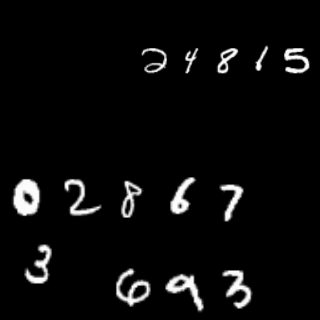 24815
02867
3
693